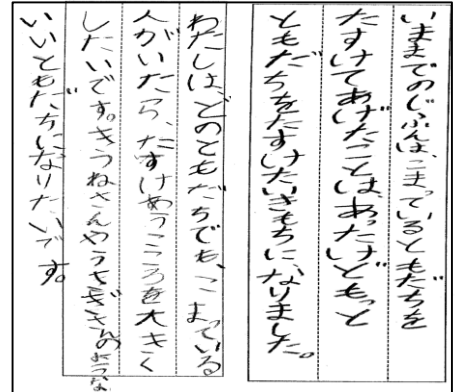 いままでのじぶんは、こまっているともだちを
たすけてあげたことは、あったけどもっと
ともだちをたすけたいきもちに、なりました。
わたしは、どのともだちでも、こまっている
人がいたら、たすけあうこころを大きく
したいです。きつねさんやうさぎさんのような
いいともだちになりたいです。